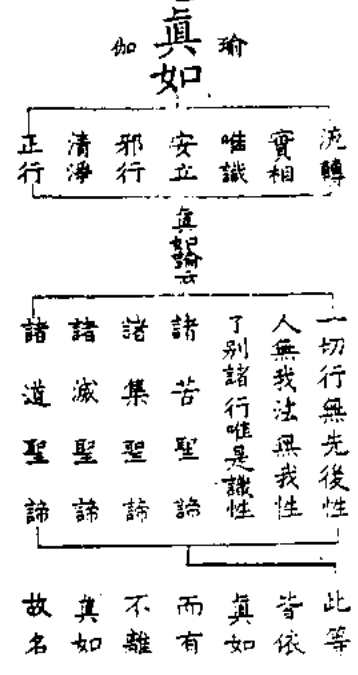 瑜伽
眞如
流轉
實相
唯識
安立
邪行
清淨
正行
眞如論云
一切行無先後性
人無我法無我性
了別諸行唯是識性
諸苦聖諦
諸集聖諦
諸滅聖諦
諸道聖諦
此等
皆依
眞如
而有
不離
眞如
故名